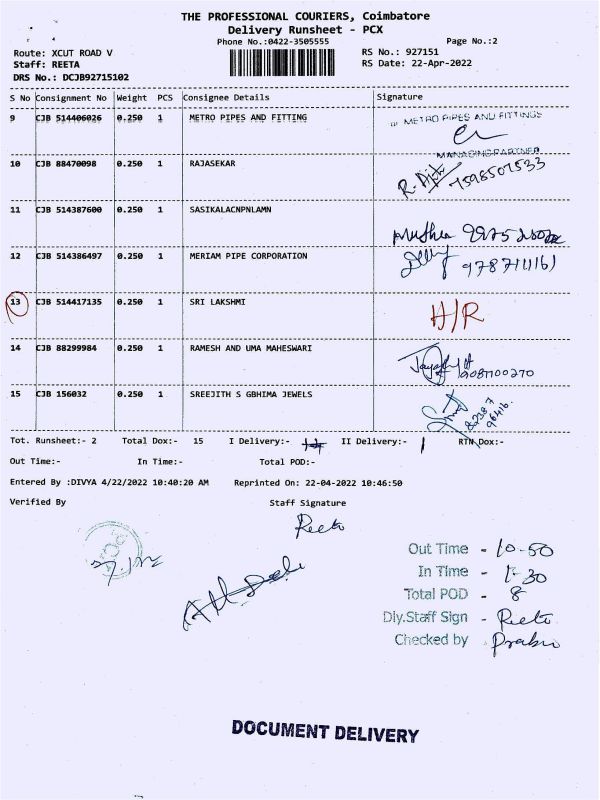 THE PROFESSIONAL COURIERS, Coimbatore
Delivery Runsheet - PCX
Phone No.:0422-3505555 Page No.:2
Route: XCUT ROAD V RS No.: 927151
Staff: REETA RS Date: 22-Apr-2022
DRS No.: DCJB92715102
S No Consignment No Weight PCS Consignee Details Signature
9 CJB 514406026 0.250 1 METRO PIPES AND FITTING METRO PIPES AND FITTINGS
MANAGING PARTNER
10 CJB 88470098 0.250 1 RAJASEKAR 7598507533
11 CJB 514387600 0.250 1 SASIKALACNPNLAMN
12 CJB 514386497 0.250 1 MERIAM PIPE CORPORATION
13 CJB 514417135 0.250 1 SRI LAKSHMI H/R
14 CJB 88299984 0.250 1 RAMESH AND UMA MAHESWARI
15 CJB 156032 0.250 1 SREEJITH S GBHIMA JEWELS
Tot. Runsheet:- 2 Total Dox:- 15 I Delivery:- II Delivery:- 1 RTN Dox:-
Out Time:- In Time:- Total POD:-
Entered By :DIVYA 4/22/2022 10:40:20 AM Reprinted On: 22-04-2022 10:46:50
Verified By Staff Signature
Reeta
Out Time - 10-50
In Time - 1-30
Total POD - 8
Dly.Staff Sign - Reeta
Checked by - Prabu
DOCUMENT DELIVERY